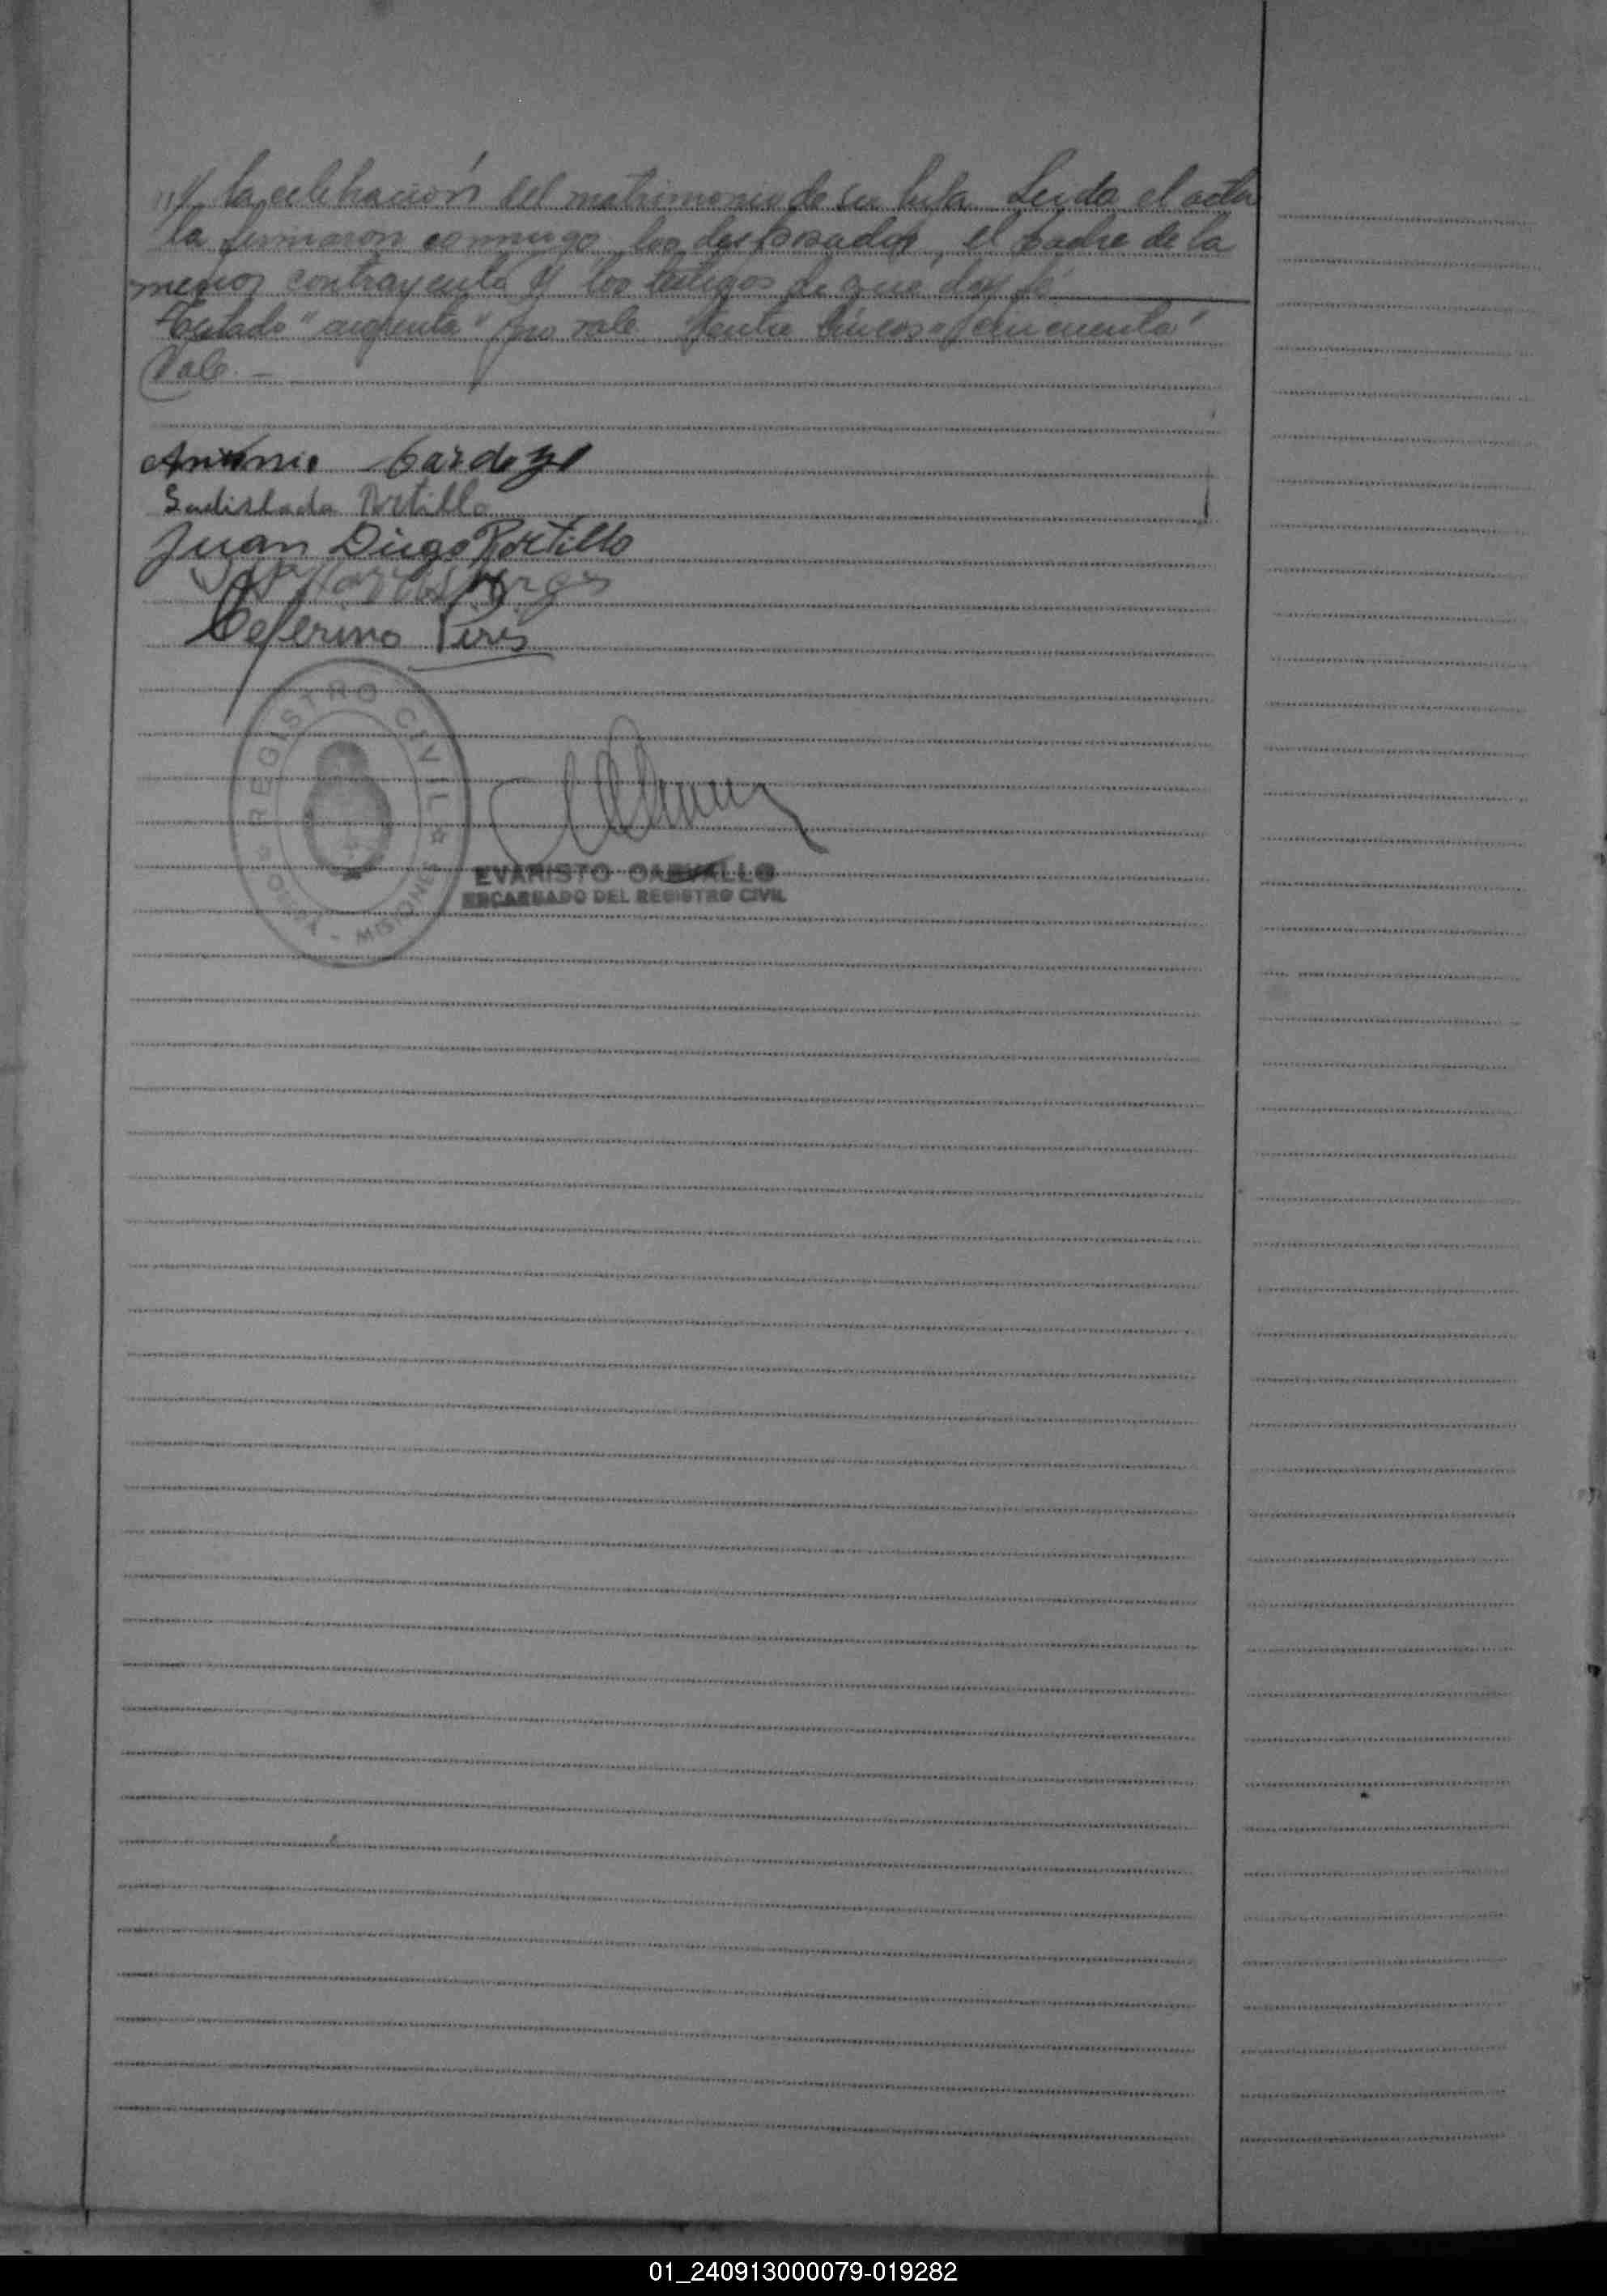 la celebración del matrimonio de su hija. Leida el acta
la firmaron conmigo los desposados, el padre de la
menor contrayente y los testigos de que doy fé
Testado "cuarenta" no vale entre líneas "cincuenta"
Vale.-
Antonio Cardozo
Ladislada Portillo
Juan Diego Portillo
Ceferino Piris
REGISTRO CIVIL
MISIONES
EVARISTO CARVALLO
ENCARGADO DEL REGISTRO CIVIL
01_240913000079-019282